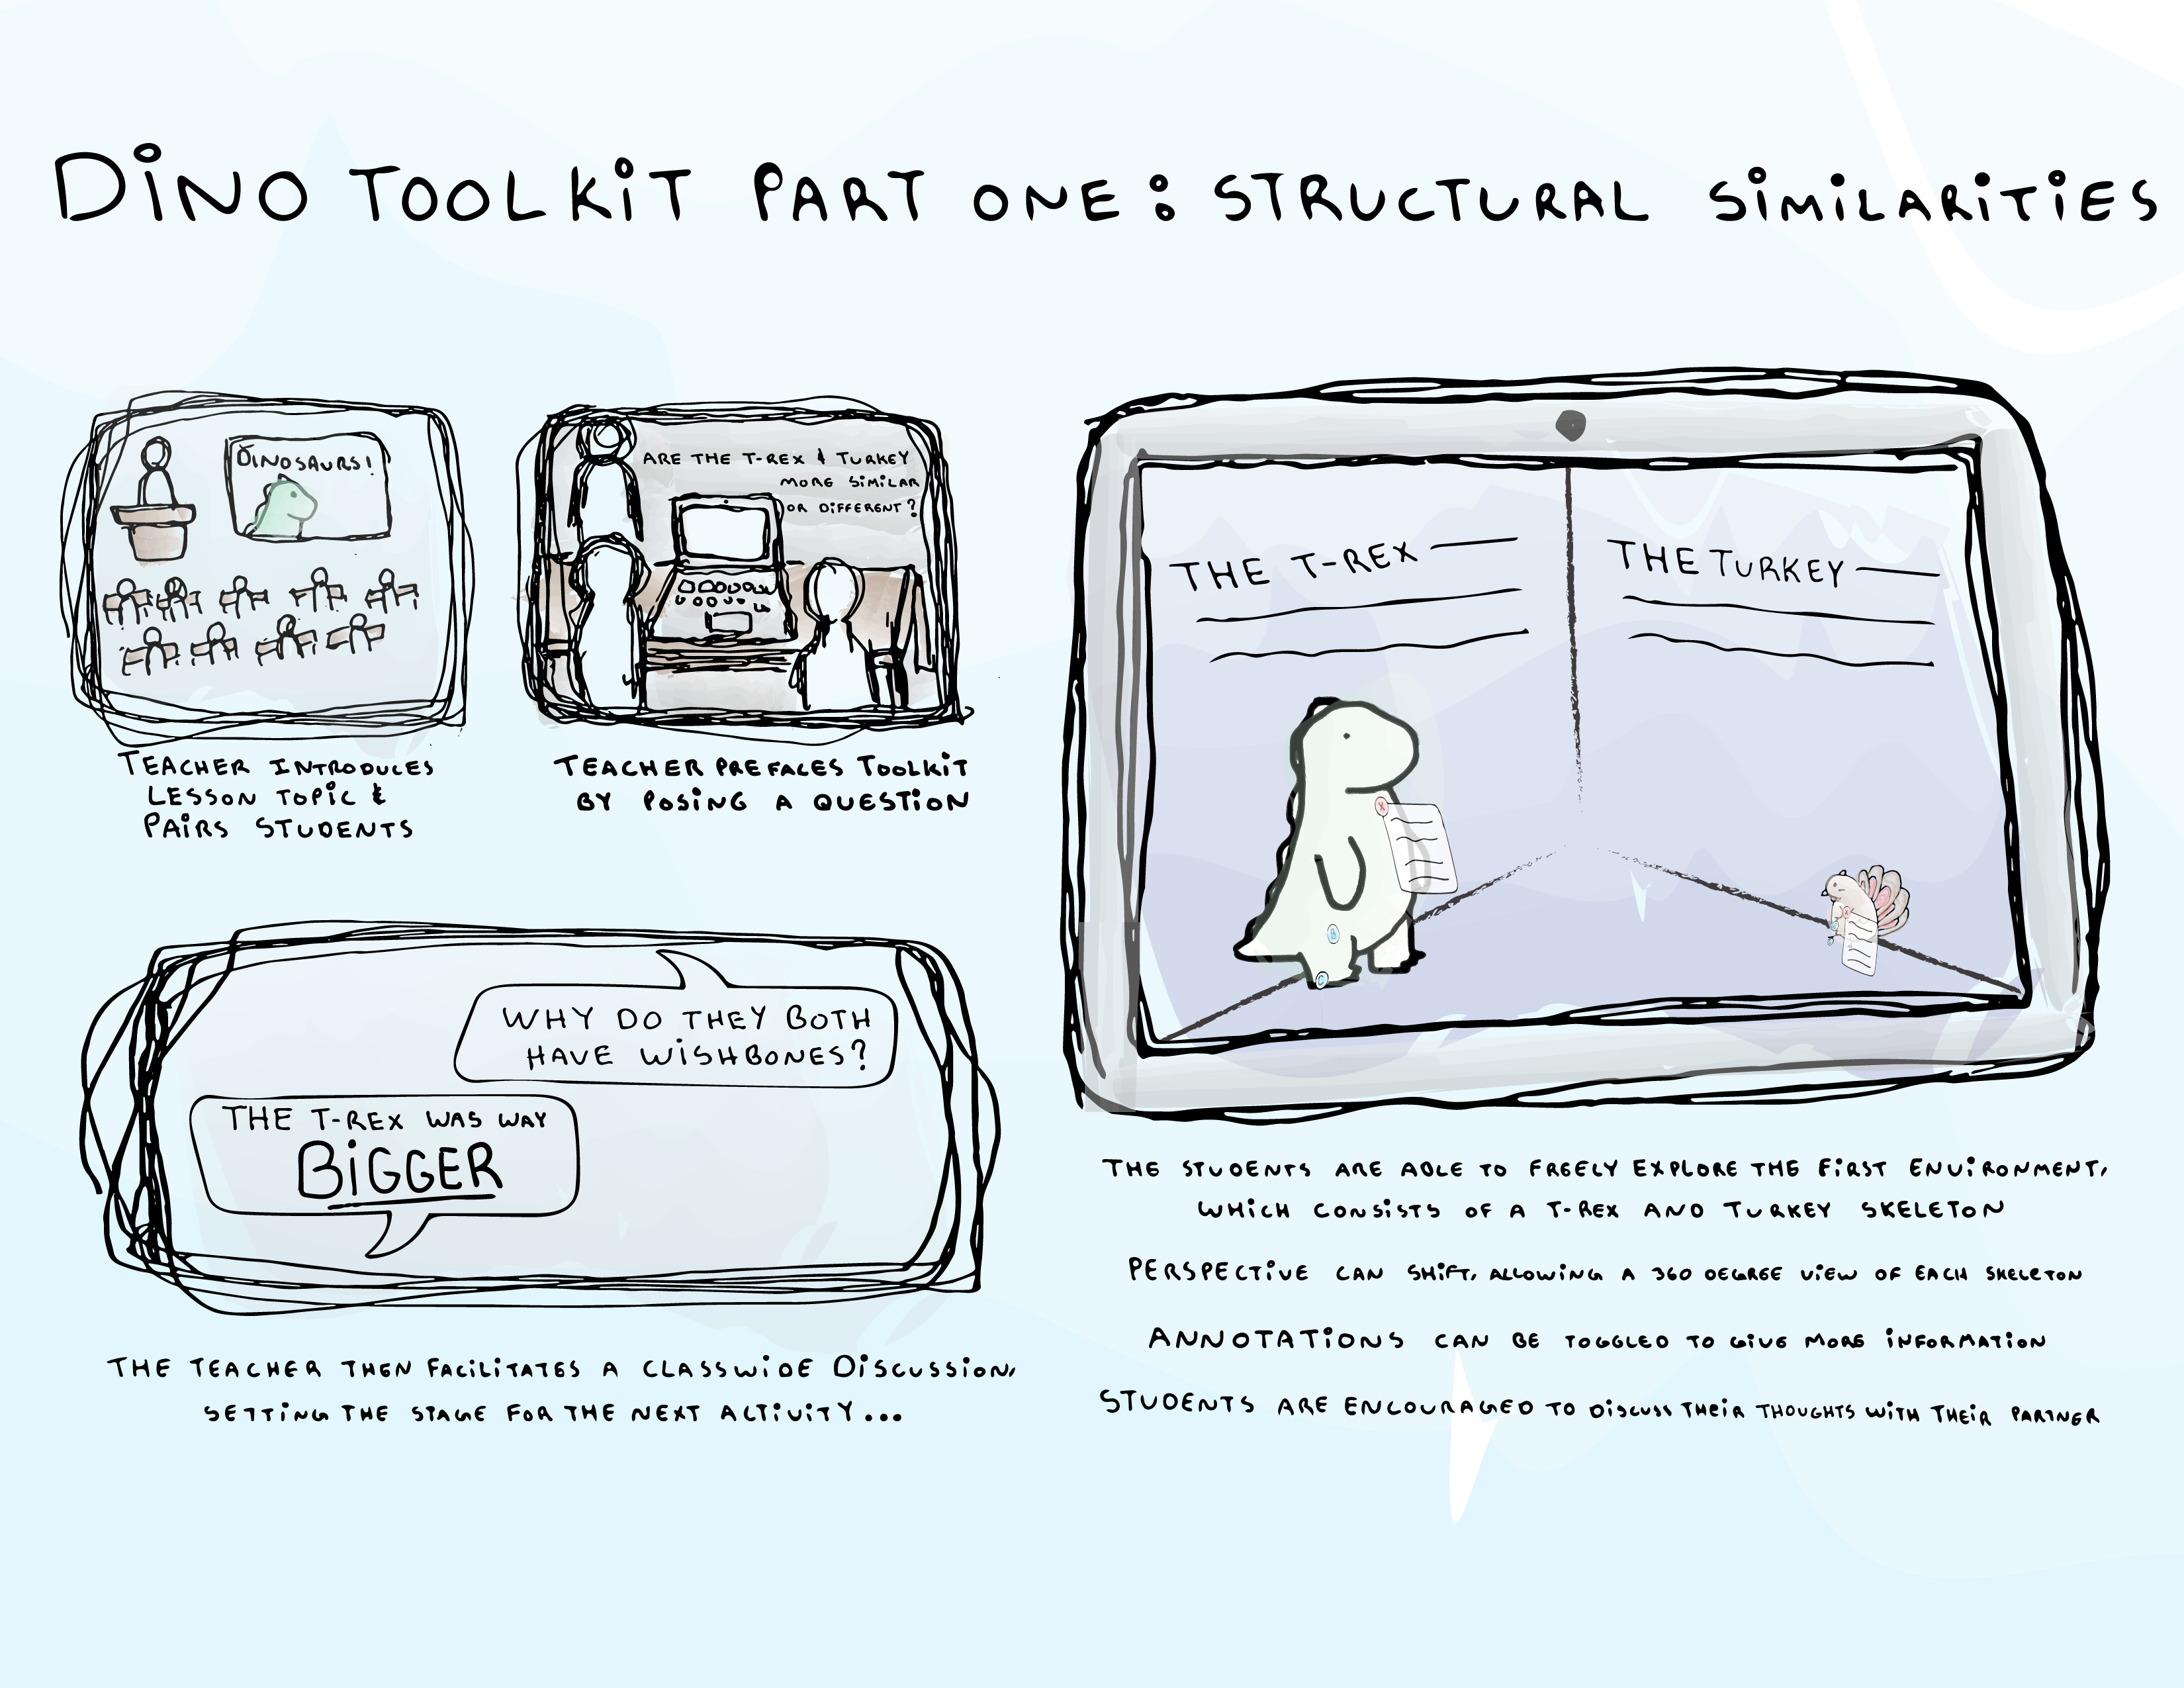 DiNO TOOLKiT PART ONE: STRUCTURAL SiMiLARiTiES
DINOSAURS!
TEACHER INTRODUCES
LESSON TOPiC &
PAiRS STUDENTS
ARE THE T-REX & TURKEY
MORE SiMiLAR
OR DiFFERENT?
TEACHER PREFACES TOOLKiT
BY POSiNG A QUESTiON
THE T-REX
THE TURKEY
X
B
C
X
THE STUDENTS ARE ABLE TO FREELY EXPLORE THE FiRST ENViRONMENT,
WHiCH CONSiSTS OF A T-REX AND TURKEY SKELETON
PERSPECTiVE CAN SHiFT, ALLOWiNG A 360 DEGREE ViEW OF EACH SKELETON
ANNOTATiONS CAN BE TOGGLED TO GiVE MORE iNFORMATiON
STUDENTS ARE ENCOURAGED TO DiSCUSS THEiR THOUGHTS WiTH THEiR PARTNER
WHY DO THEY BOTH
HAVE WiSHBONES?
THE T-REX WAS WAY
BiGGER
THE TEACHER THEN FACiLiTATES A CLASSWiDE DiSCUSSiON,
SETTiNG THE STAGE FOR THE NEXT ACTiViTY...